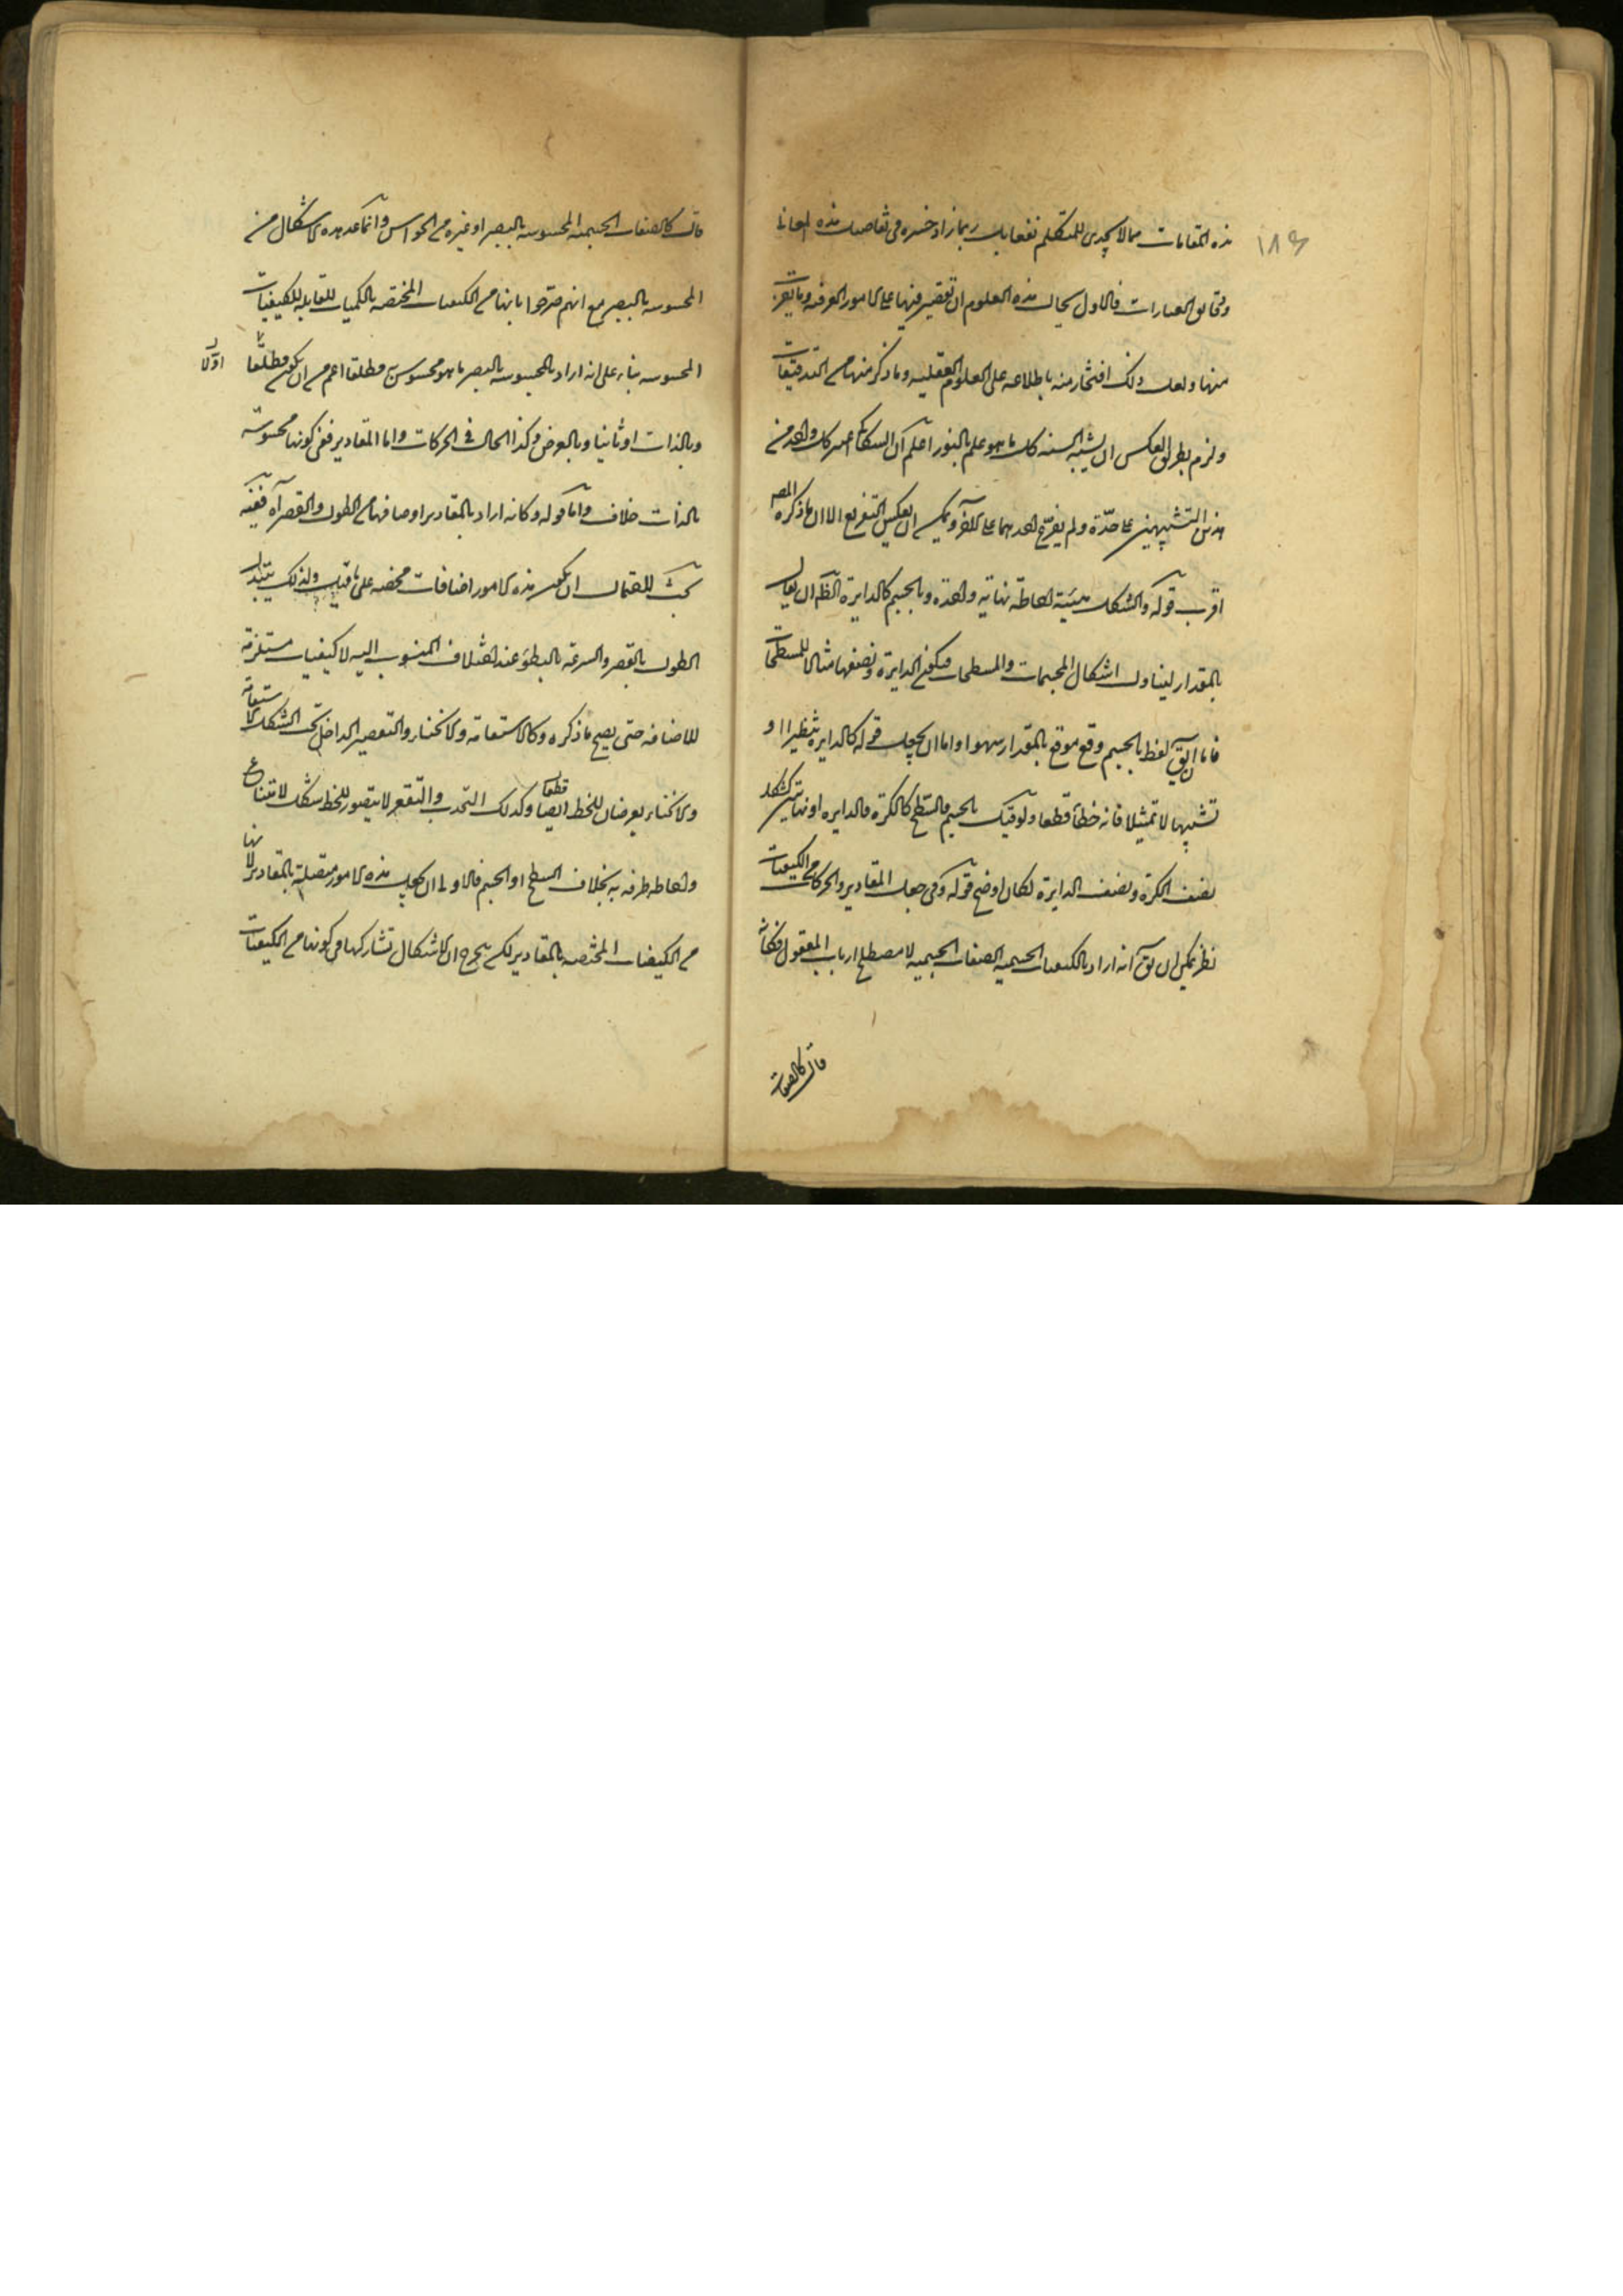 ١٨٩
هذه المقامات مما لا يجدى للمتكلم نفعا بل ربما زاد خسره فى تفاصيل هذه المعانى
ودقايق العبارات فالاولى بحال هذه العلوم ان يقتصر فيها على الامور العرفية وما يقرب
منها ولعل ذلك افتخار منه باطلاعه على العلوم العقلية وما ذكر منها من التدقيقات
ولزم بطريق العكس ان يشبه السنة وكل ما هو علم بالنور اعلم ان السكاكى كل واحد من
هذين التشبيهين على حدة ولم يفرع احدهما على الآخر ويمكن ان يعكس التفريع الا ان ما ذكره المص
اقرب قوله والشكل هيئة احاطة نهاية واحدة بالجسم كالدايرة الظ ان يقال
بالمقدار ليتناول اشكال المجسمات والمسطحات فيكون الدايرة ونصفها مثالا للمسطحات
فاما ان يق لفظ بالجسم وقع موقع بالمقدار سهوا واما ان يجعل قوله كالدايره تنظيرا او
تشبيها لا تمثيلا فانه خطأ قطعا ولو قيل بالجسم والسطح كالكرة والدايره او نهايتين كشكل
نصف الكرة ونصف الدايرة لكان اوضح قوله وفى جعل المقادير والحركات من الكيفيات
نظر يمكن ان يق انه اراد بالكيفيات الجسمية الصفات الجسمية لا مصطلح ارباب المعقول فكانه
قال كالصفات
قال كالصفات الجسمية المحسوسة بالبصر او غيره من الحواس وانما عد هذه الاشكال من
المحسوسه بالبصر مع انهم صرحوا بانها من الكيفيات المختصه بالكميات المقابله للكيفيات
المحسوسه بناء على انه اراد بالمحسوسه بالبصر ما هو محسوس به مطلقا اعم من ان يكون مطلقا اولا
وبالذات او ثانيا وبالعرض وكذا الحال فى الحركات واما المقادير ففى كونها محسوسة
بالذات خلاف واما قوله وكانه اراد بالمقادير اوصافها من الطول والقصر آه ففيه
بحث لاحتمال ان يكون هذه الامور اضافات محضه على ما قيل ولذلك يتبدل
الطول بالقصر والسرعة بالبطؤ عند اختلاف المنسوب اليه لا كيفيات مستلزمة
للاضافه حتى يصح ما ذكره وكالاستقامة والانحناء والتقعير الداخل تحت الشكل الاستقامة
والانحناء يعرضان للخط ايضا قطعا وكذلك التحدب والتقعر لا يتصور للخط شكل لامتناع
احاطه طرفه به بخلاف السطح او الجسم فالاولى ان يجعل هذه الامور متصلة بالمقادير لانها
من الكيفيات المختصه بالمقادير لكن يتجه ان الاشكال تشاركها فى كونها من الكيفيات